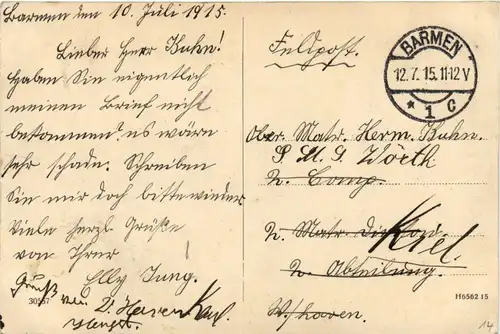 Barmen den 10. Juli 1915.
Lieber Herr Kuhn!
Haben Sie eigentlich
meinen Brief nicht
bekommen es wäre
sehr schade. Schreiben
Sie mir doch bitte wieder
Viele herzl. Grüße
von Ihrer
Elly Jung.
Gruß
von
30557
Feldpost.
BARMEN
12.7.15.11-12V
* 1 c
Ober Matr. Herm. Kuhn.
S. M. S. Wörth
2. Comp.
Kiel.
2. Matr. Division
2. Abteilung.
W/haven.
H6562 15
14